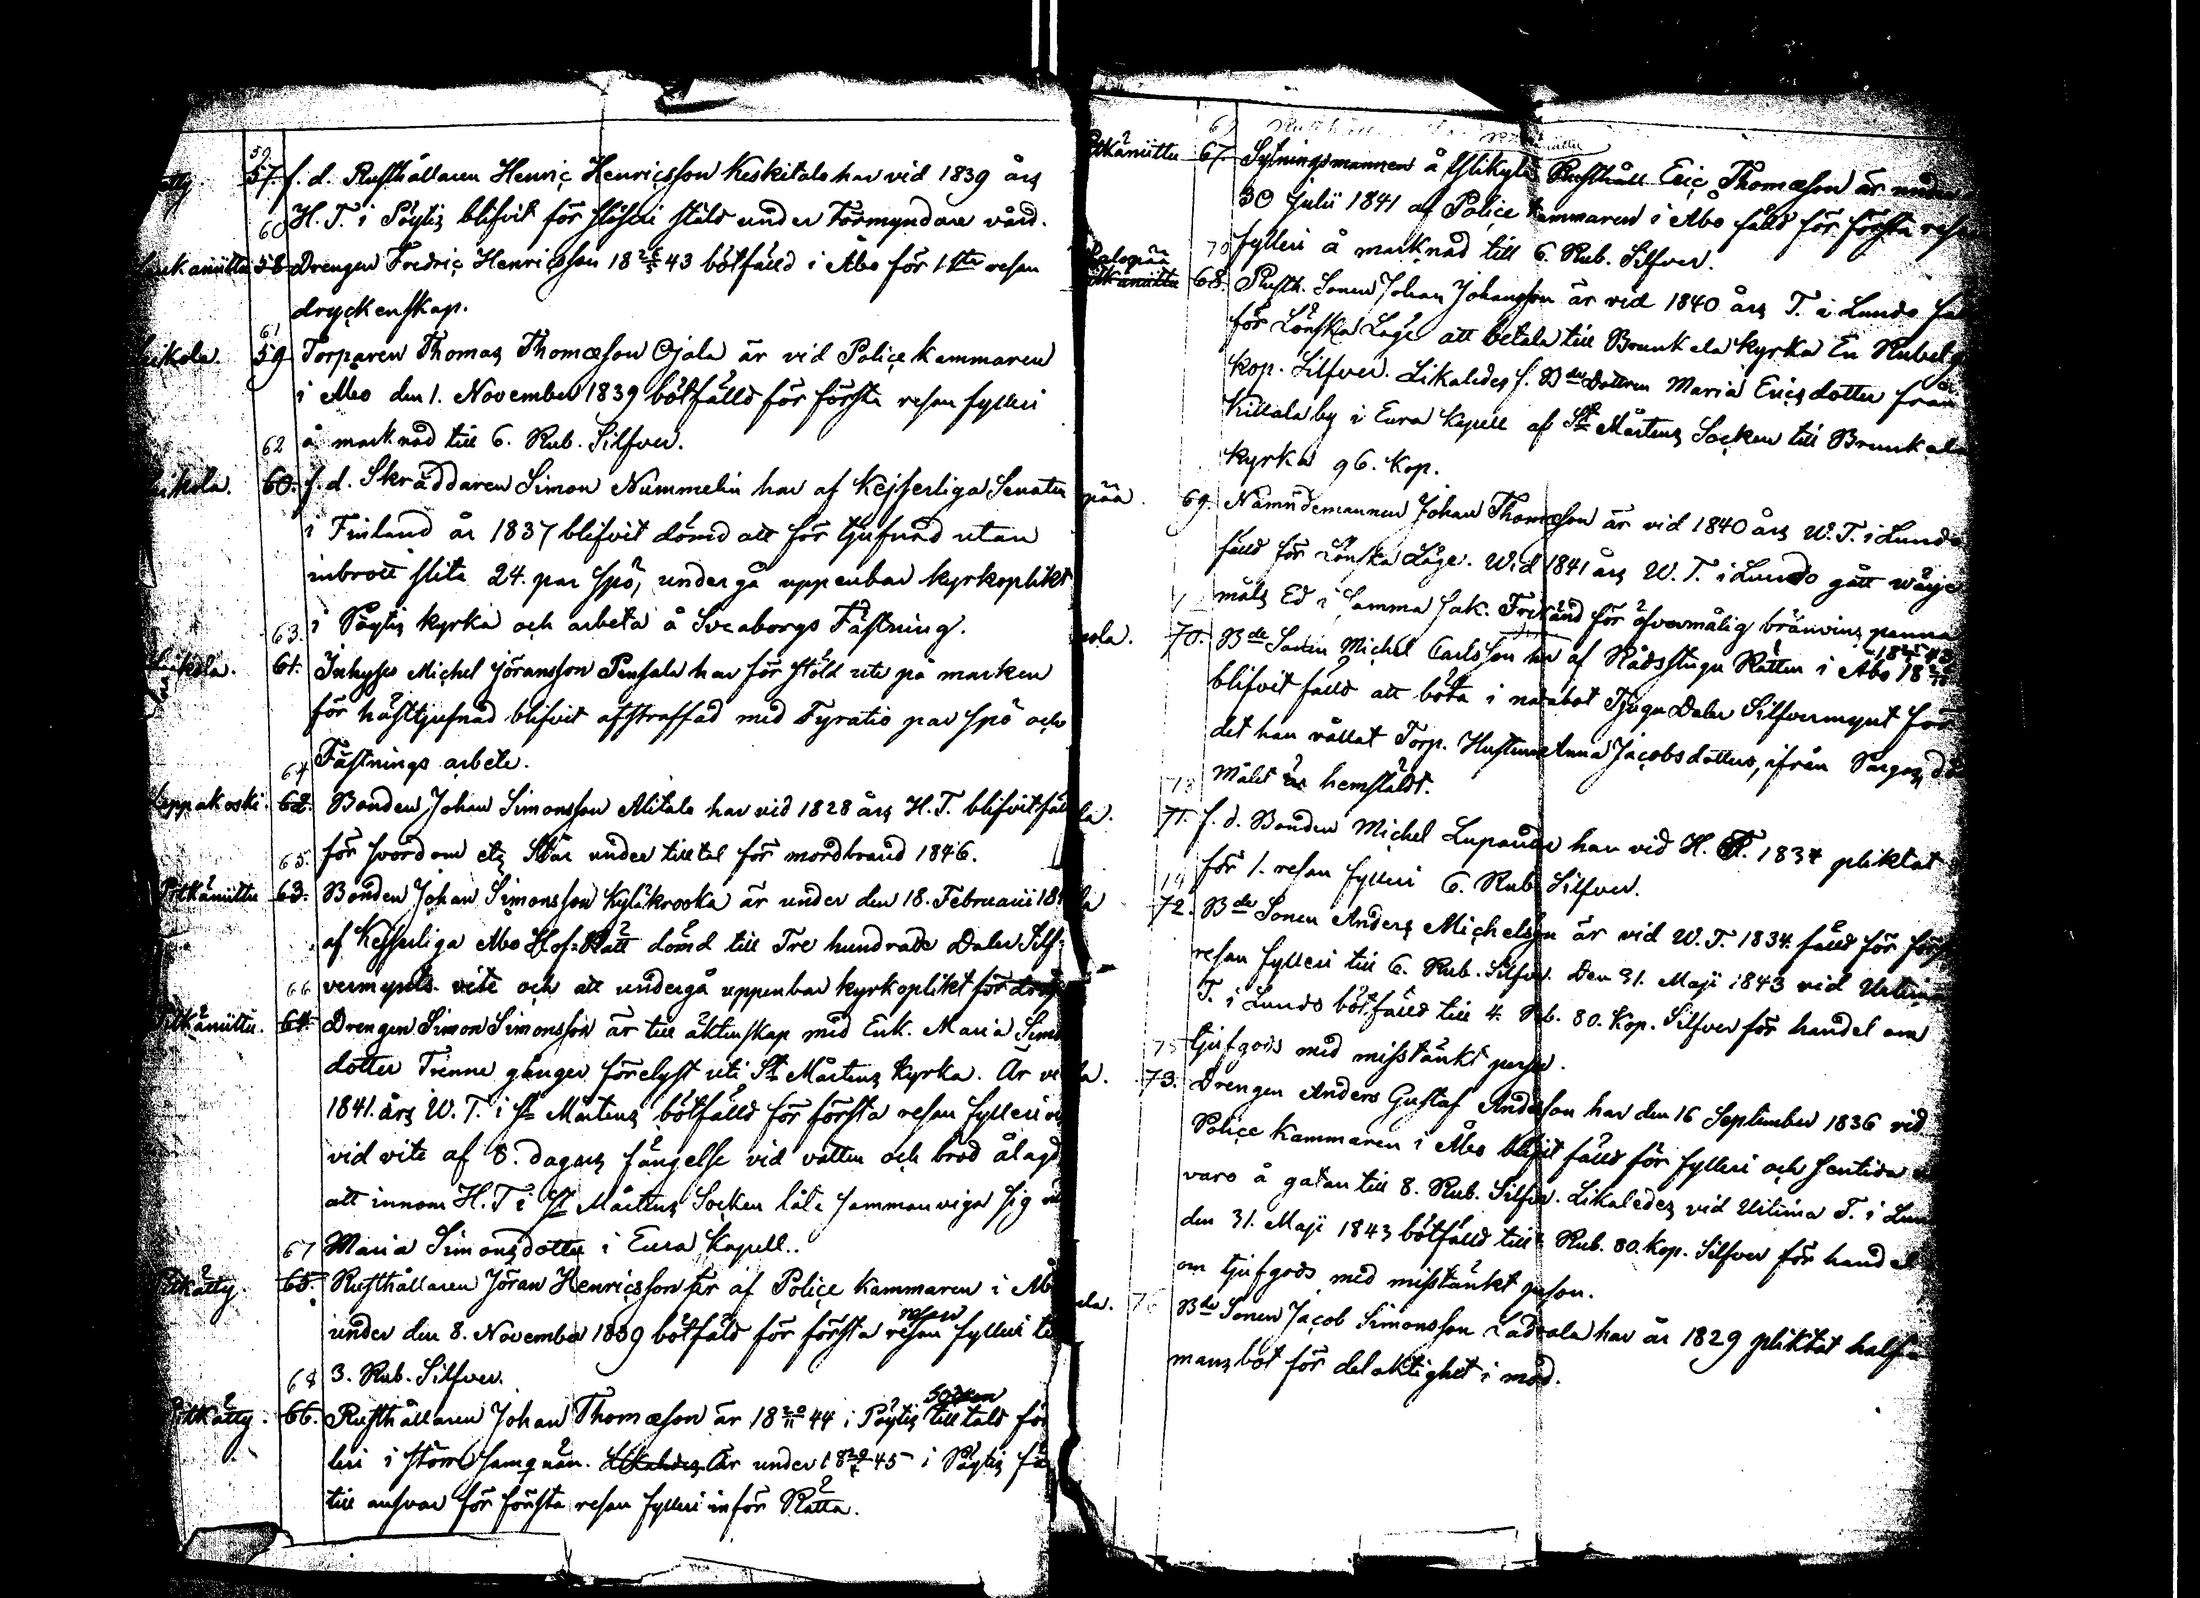 59
57. f. d. Rusthållaren Henric Henricsson Keskitalo har vid 1839 års
60 H. T. i Pöytis blifvit för slöseri stäld under Förmyndare vård.
58 Drengen Fredric Henricsson 18 43 bötfälld i Åbo för 1sta resan
dryckenskap.
61
ikola. 59 Torparen Thomas Thomæson Ojala är vid Police kammaren
i Åbo den 1. November 1839 bötfälld för första resan fylleri
62 å marknad till 6. Rub. Silfver.
ikola. 60. f. d. Skräddaren Simon Nummelin har af Kejserliga Senaten
i Finland år 1837 blifvit dömd att för tjufnad utan
inbrott slita 24. par spö, undergå uppenbar kyrkoplikt
63. i Pöytis kyrka och arbeta å Sveaborgs Fästning.
ikola. 61. Inhyses Michel Jöransson Pensala har för stöld ute på marken
för hästtjufnad blifvit afstraffad med Fyratio par spö och
64 Fästnings arbete.
Leppakoski. 62. Bonden Johan Simonsson Alitalo har vid 1828 års H. T. blifvit fäl
65. för svordom etc Står under tilltal för mordbrand 1846.
Pitkäniittu 63. Bonden Johan Simonsson Kyläkrooka är under den 18. Februarii 18
af Kejserliga Åbo Hof-Rätt dömd till Tre hundrade Daler Silf-
66 vermynts vite och att undergå uppenbar kyrkoplikt för
Pitkäniittu. 64 Drengen Simon Simonsson är till äktenskap med Enk. Maria Simo
dotter Trenne gånger förelyst uti St Mårtens Kyrka. Är vi
1841 års W. T. i St Mårtens bötfälld för första resan fylleri o
vid vite af 8. dagars fängelse vid vatten och bröd ålagd
att innom H. T i St Mårtens Socken låta sammanviga sig
67 Maria Simonsdotter i Eura Kapell..
Pitkätty. 65. Rusthållaren Jöran Henricsson är af Police kammaren i Åb
resan
under den 8. November 1839 bötfäld för första resan fylleri ti
68 3. Rub. Silfver.
Socken
Pitkätty. 66. Rusthållaren Johan Thomæson är 18 44 i Pöytis tilltald för
leri i större samqväm. Likaledes Är under 18 45 i Pöytis fä
till ansvar för första resan fylleri inför Rätta.
Pitkäniittu 67. Sytningsmannen å Ylikylä Rusthåll Eric Thomæson är under
30 Julii 1841 af Police kammaren i Åbo fälld för första resa
70 fylleri å marknad till 6. Rub. Silfver.
68. Rusth. Sonen Johan Johansson är vid 1840 års T. i Lundo fäl
för Lönska Läge att betala till Brunkala kyrka En Rubel
kop. Silfver. Likaledes f. Bde Dottren Maria Ericsdotter från
Killala by i Eura Kapell af St Mårtens Socken till Brunkala
kyrka 96. kop.
69. Nämndemannen Johan Thomæson är vid 1840 års W. T. i Lundo
fälld för Lönska Läge. Wid 1841 års W. T. i Lundo gått wärje
måls Ed i Samma sak. Frikänd för öfvermålig bränvins panna
70. Bde Sonen Michel Carlsson har af Rådstugu Rätten i Åbo 18
blifvit fälld att böta i Tjugu Daler Silfvermynt för
det han vållat Torp. Hustrun Anna Jacobsdotters, ifrån dö
73 Målet är hemstäldt.
la. 71. f. d. Bonden Michel har vid H. T. 1834 pliktat
för 1. resan fylleri 6. Rub Silfver.
la 72. Bde Sonen Anders Michelsson är vid W. T. 1834. fälld för förs
resan fylleri till 6. Rub. Silfver. Den 31. Maji 1843 vid Urtima
T. i Lundo bötfälld till 4. Rb. 80. Kop. Silfver för handel om
75 tjufgods med misstänkt person.
la. 73. Drengen Anders Gustaf Andersson har den 16 September 1836 vid
Police Kammaren i Åbo blifvit fälld för fylleri och sentida
varo å gatan till 8. Rub. Silfver. Likaledes vid Urtima T. i Lun
den 31. Maji 1843 bötfälld till Rub. 80. kop. Silfver för handel
om tjufgods med misstänkt person.
ala. 76 Bde Sonen Jacob Simonsson har år 1829 pliktat half
mans bot för delaktighet i mord.